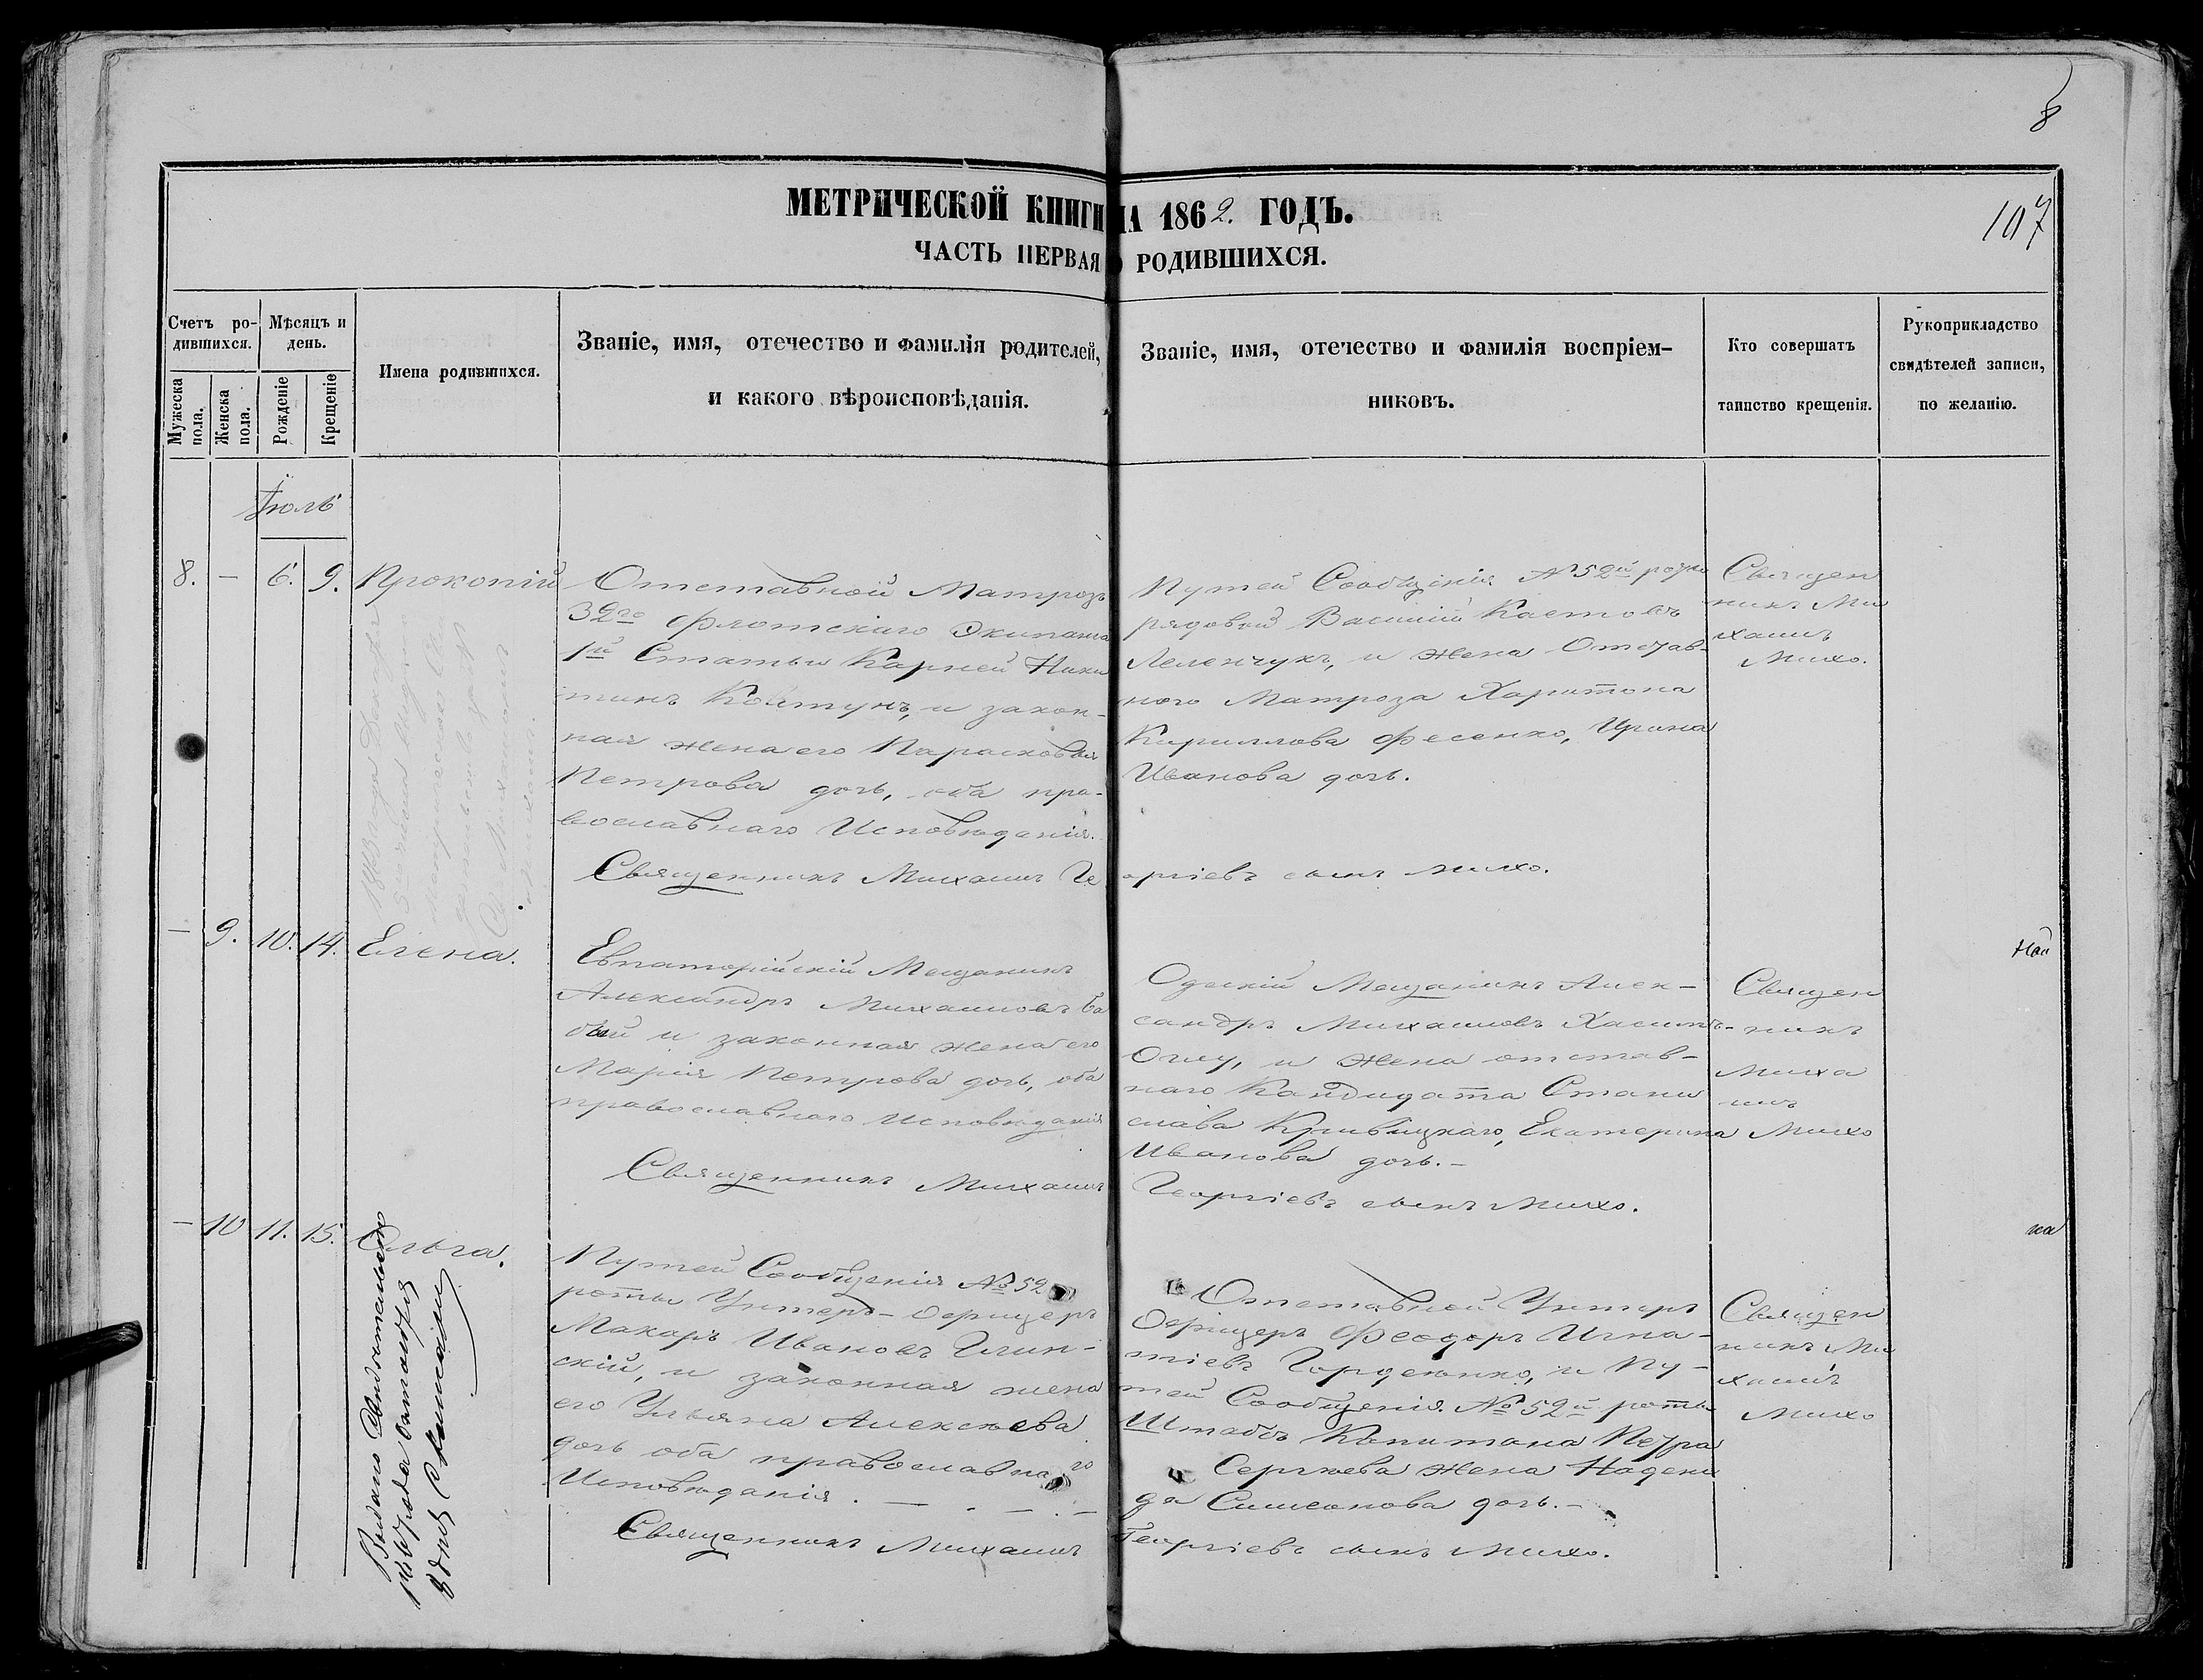 8
МЕТРИЧЕСКОЙ КНИГИ НА 1862. ГОДЪ.
107
ЧАСТЬ ПЕРВАЯ О РОДИВШИХСЯ.
Счетъ ро-
дившихся.
Мужеска
пола.
Женска
пола.
Мѣсяцъ и
день.
Рожденіе
Крещеніе
Имена родившихся.
Званіе, имя, отечество и фамилія родителей,
и какого вѣроисповѣданія.
Званіе, имя, отечество и фамилія воспріем-
никовъ.
Кто совершатъ
таинство крещенія.
Рукоприкладство
свидѣтелей записи,
по желанію.
Іюль
8. — 6. 9. Прокопій
Отставной Матрозъ
32го Флотскаго Экипажа
1й Статьи Карней Ники
тинъ Ковтунъ, и закон-
ная жена его Парасковія
Петрова дочь, оба пра-
вославнаго Исповѣданія.
Путей Сообщенія №52й роты
рядовой Василій Каетовъ
Леленчукъ, и жена Отстав-
ного Матроза Харитона
Кириллова Фесенко, Ирина
Иванова дочь.
Священ
никъ Ми
хаилъ
Михо.
Священникъ Михаилъ Георгіевъ сынъ Михо.
— 9. 10. 14. Елена.
Евпаторійскій Мещанинъ
Александръ Михаиловъ Ба
бій и законная жена его
Марія Петрова дочь, оба
православнаго Исповѣданія
Одескій Мещанинъ Алек-
сандръ Михаиловъ Хасимъ-
Оглу, и жена отстав-
наго Кандидата Стани
слава Кривицкаго, Екатерина
Иванова дочь. —
Священ
никъ
Миха
илъ
Михо
Священникъ Михаилъ Георгіевъ сынъ Михо.
— 10 11. 15. Ольга.
Путей Сообщенія №52
роты Унтеръ-Офицеръ
Макаръ Ивановъ Глин-
скій, и законная жена
его Ульяна Алексѣева
дочь оба православнаго
Исповѣданія. —
Отставной Унтеръ
Офицеръ Феодоръ Игна-
тіевъ Гордѣенко, и Пу-
тей Сообщенія. №52й роты
Штабсъ Капитана Петра
Сергѣева жена Надеж
да Симеонова дочь. —
Священ
никъ Ми
хаилъ
Михо
Священникъ Михаилъ Георгіевъ сынъ Михо.
Выдано Свидѣтельство